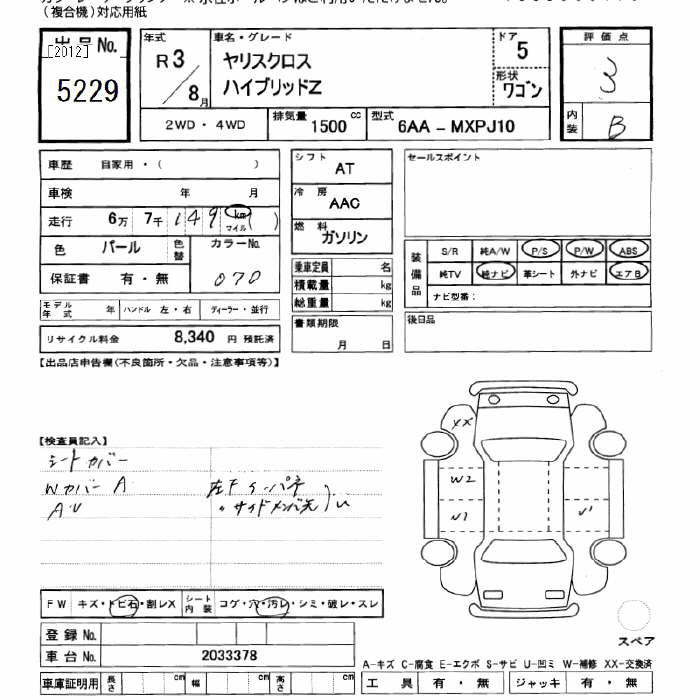 （複合機）対応用紙
出品No.
[2012]
5229
年式
R 3／8月
車名・グレード
ヤリスクロス
ハイブリッドZ
ドア
5
形状
ワゴン
評価点
3
内装
B
2WD・4WD
排気量 1500 cc
型式 6AA－MXPJ10
車歴 自家用・（ ）
車検 年 月
走行 6万 7千 149 km マイル ( )
色 パール 色替 カラーNo.
070
保証書 有・無
モデル年式 年 ハンドル 左・右 ディーラー・並行
リサイクル料金 8,340 円 預託済
シフト AT
冷房 AAC
燃料 ガソリン
乗車定員 名
積載量 kg
総重量 kg
書類期限
月 日
セールスポイント
装備品
S/R 純A/W P/S P/W ABS
純TV 純ナビ 革シート 外ナビ エアB
ナビ型番：
後日品
【出品店申告欄(不良箇所・欠品・注意事項等)】
【検査員記入】
シートカバー
Wカバー A
AU
左F
〃 サイドメンバ先
XX
W2
U1
U1
FW キズ・トビ石・割レX
シート内装 コゲ・穴・汚レ・シミ・破レ・スレ
登録No.
車台No. 2033378
車庫証明用 長さ cm 幅 cm 高さ cm
スペア
A-キズ C-腐食 E-エクボ S-サビ U-凹ミ W-補修 XX-交換済
工具 有・無 ジャッキ 有・無